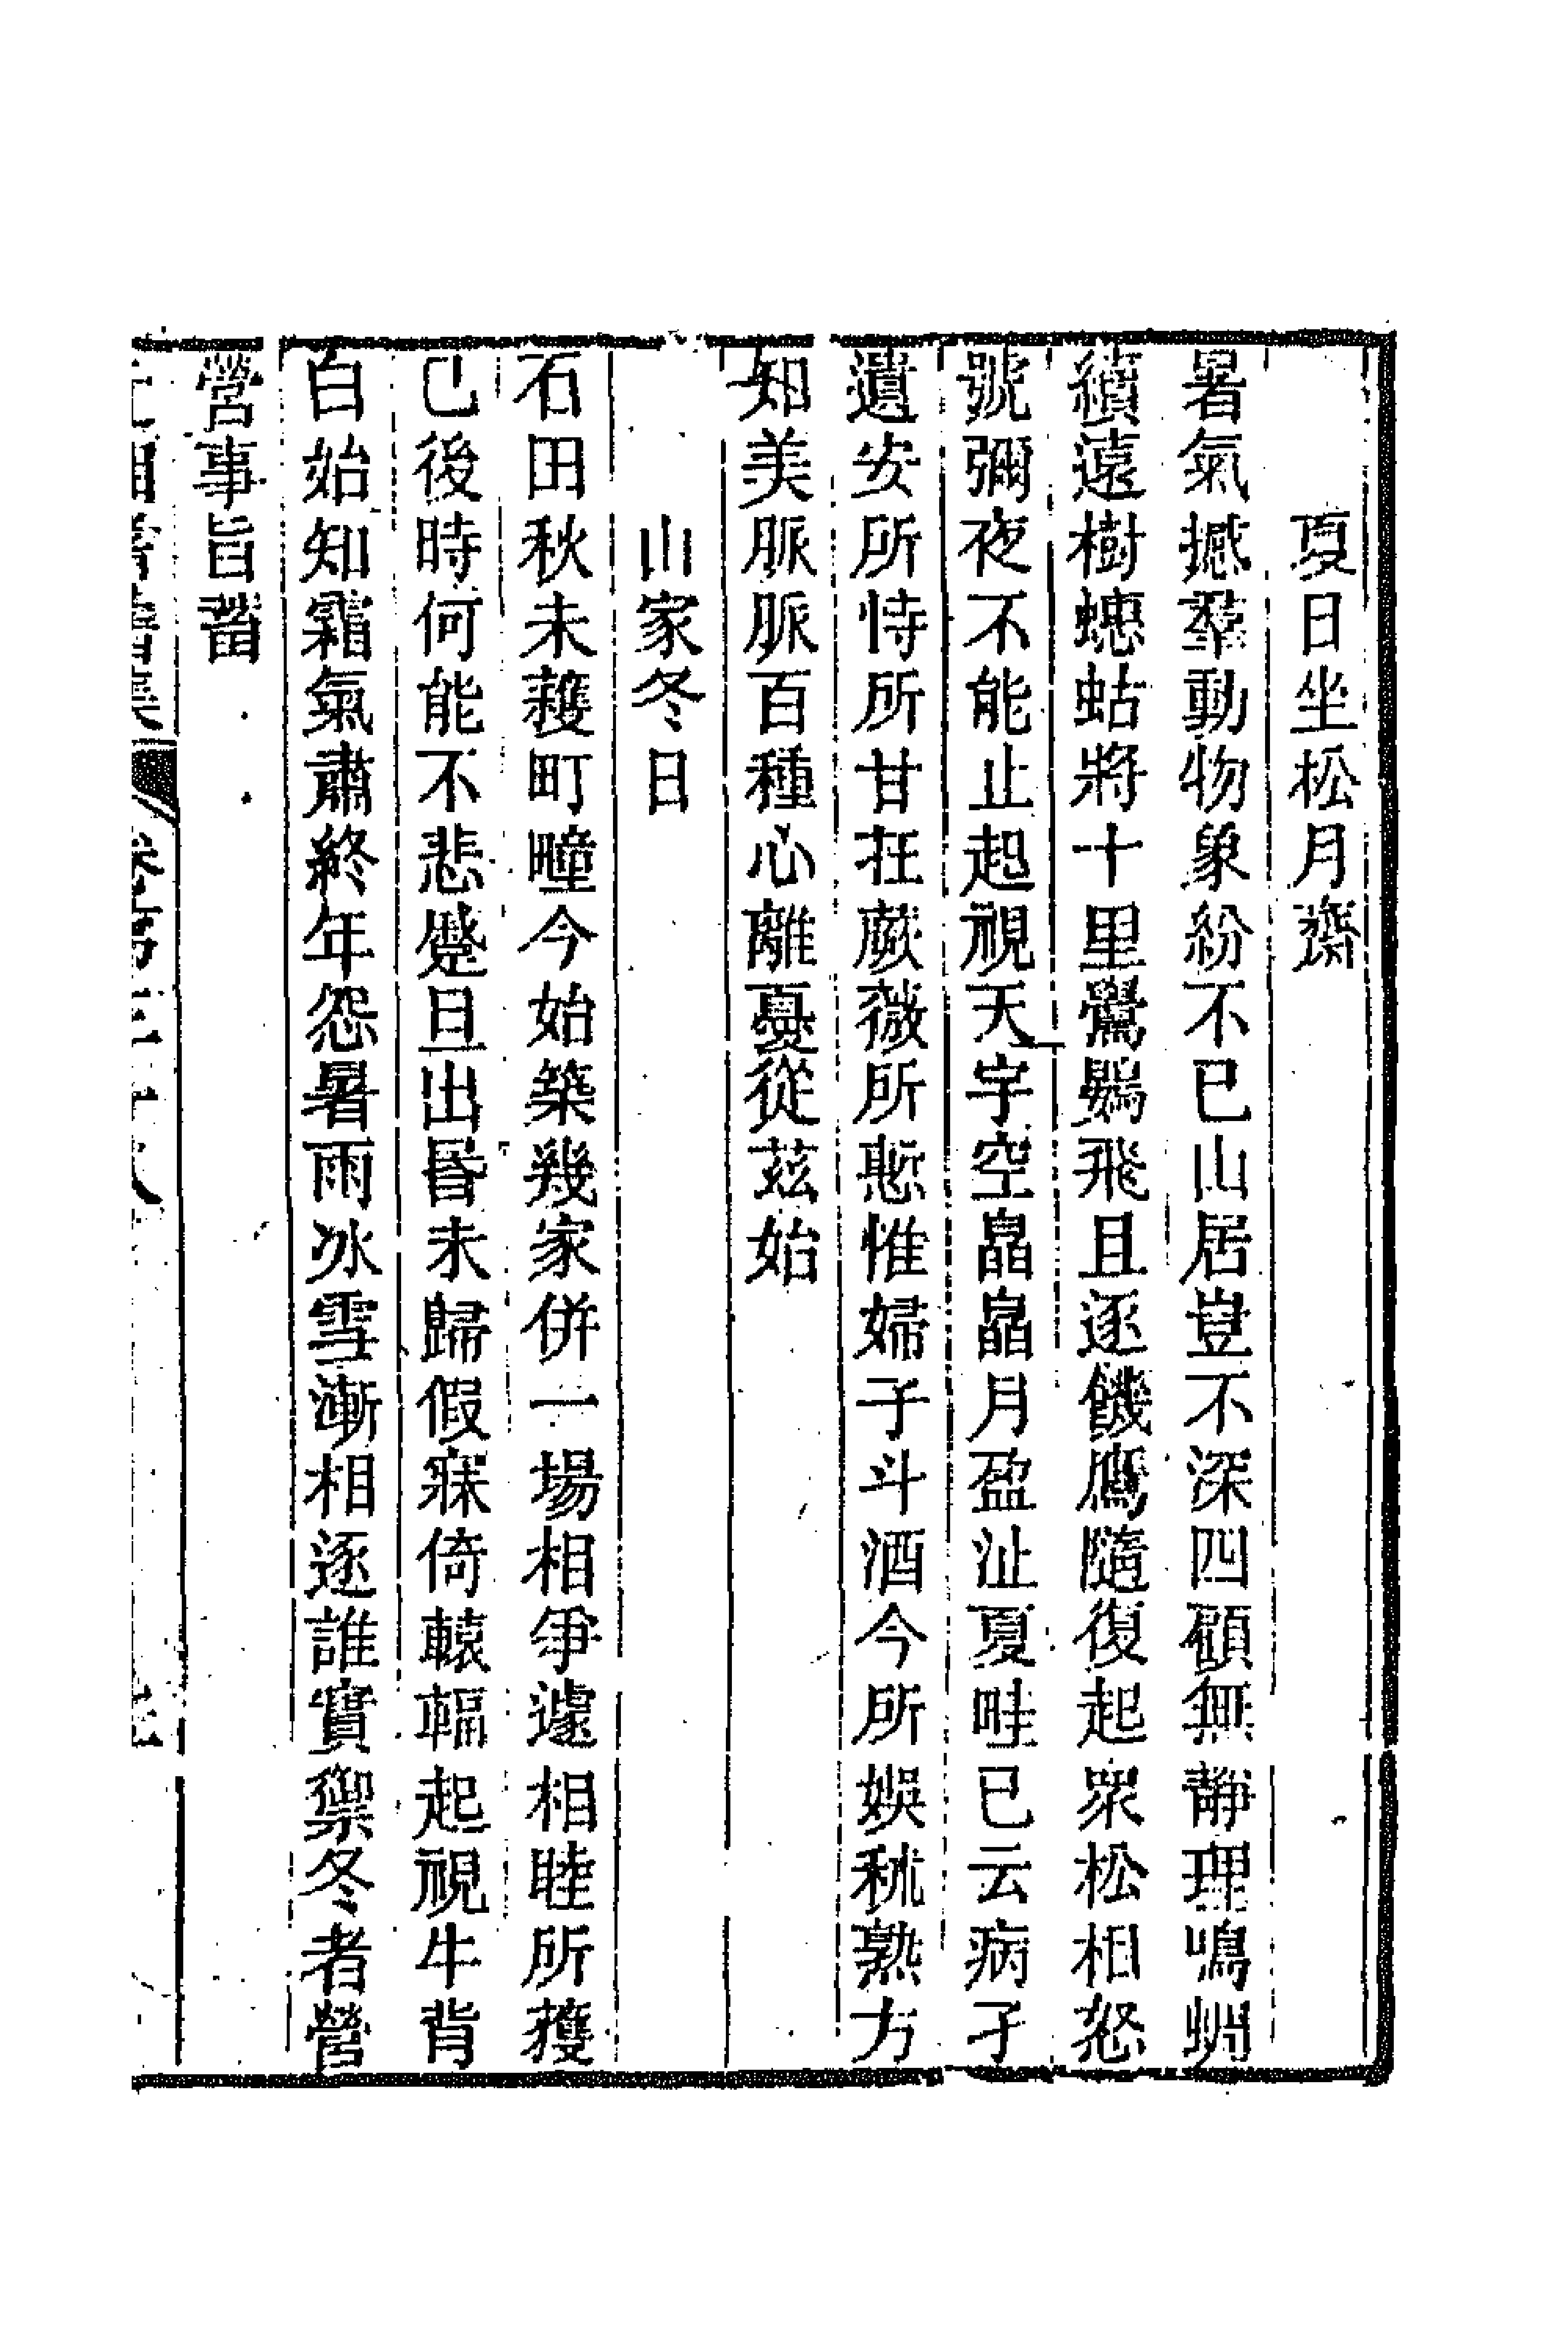 夏日坐松月齋
暑氣撼羣動物象紛不已山居豈不深四顧無靜理鳴蜩
續遠樹蟪蛄將十里鸎鷃飛且逐饑鷹隨復起衆松相怒
號彌夜不能止起視天宇空皛皛月盈沚夏畦已云病孑
遺安所恃所甘在蕨薇所慙惟婦子斗酒今所娛秫熟方
知美脈脈百種心離憂從茲始
山家冬日
石田秋未穫町疃今始築幾家併一場相爭遽相睦所穫
已後時何能不悲蹙旦出昏未歸假寐倚轅輻起視牛背
白始知霜氣肅終年怨暑雨冰雪漸相逐誰實禦冬者營
營事旨蓄